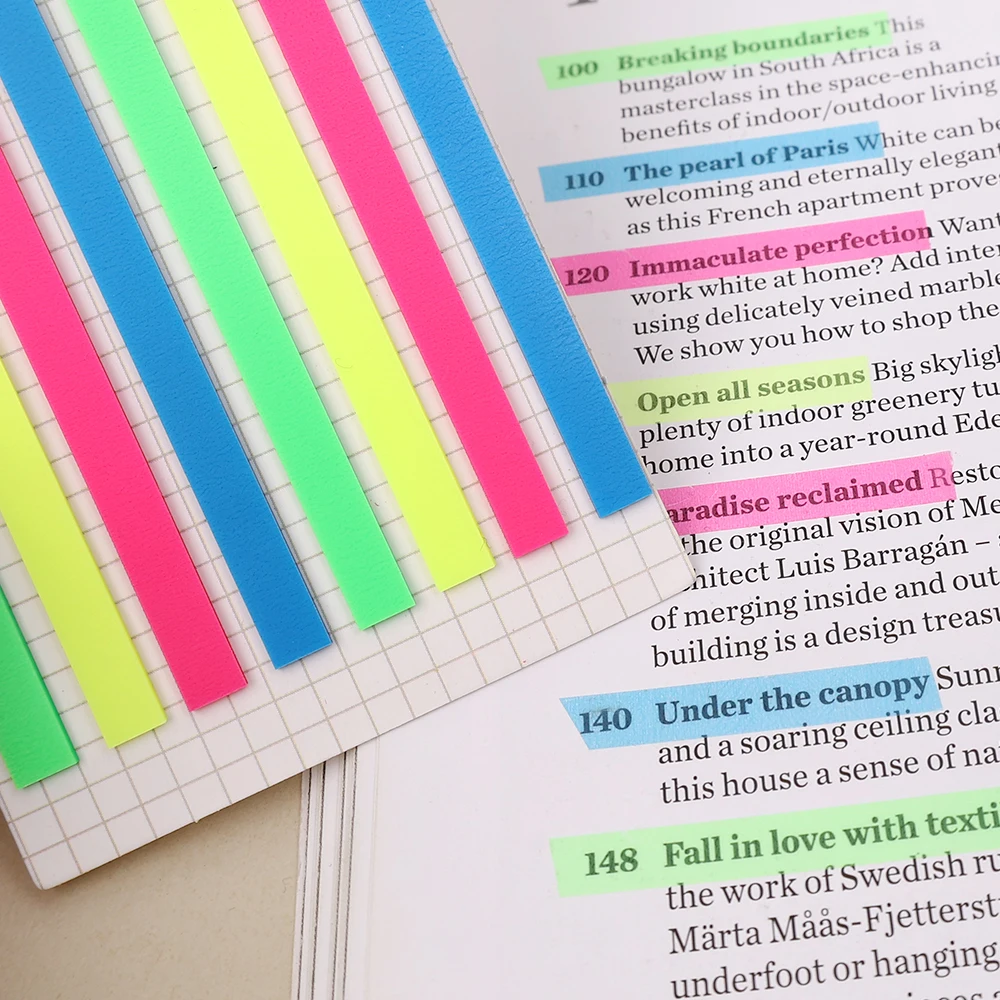 100 Breaking boundaries This
bungalow in South Africa is a
masterclass in the space-enhancin
benefits of indoor/outdoor living
110 The pearl of Paris White can be
welcoming and eternally elegant
as this French apartment prove
120 Immaculate perfection Want
work white at home? Add inter
using delicately veined marble
We show you how to shop the
Open all seasons Big skyligh
plenty of indoor greenery tu
home into a year-round Ede
aradise reclaimed Resto
the original vision of Me
hitect Luis Barragán –
of merging inside and out
building is a design treasu
140 Under the canopy Sunn
and a soaring ceiling cla
this house a sense of na
148 Fall in love with texti
the work of Swedish ru
Märta Måås-Fjetterst
underfoot or hanging